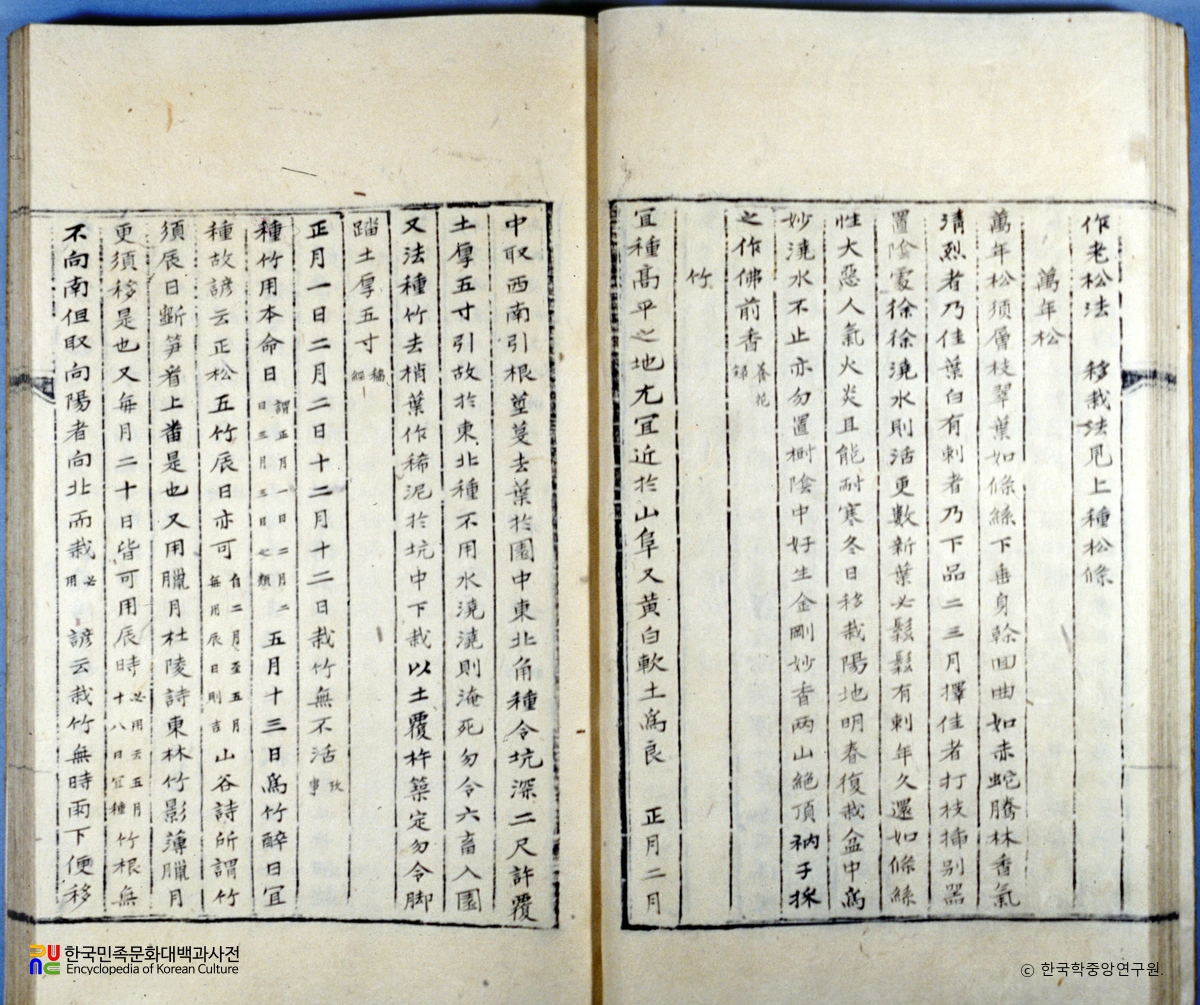 作老松法 移栽法見上種松條
萬年松
萬年松須層枝翠葉如條絲下垂身榦回曲如赤蛇騰林香氣
清烈者乃佳葉白有刺者乃下品二三月擇佳者打枝揷別器
置陰處徐徐澆水則活更數新葉必鬆鬆有刺年久還如條絲
性大惡人氣火炎且能耐寒冬日移栽陽地明春復栽盆中爲
妙澆水不止亦勿置樹陰中好生金剛妙香兩山絶頂衲子採
之作佛前香 養花
錄
竹
宜種高平之地尤宜近於山阜又黃白軟土爲良 正月二月
中取西南引根莖蔓去葉於園中東北角種令坑深二尺許覆
土厚五寸引故於東北種不用水澆澆則淹死勿令六畜入園
又法種竹去梢葉作稀泥於坑中下栽以土覆杵築定勿令脚
踏土厚五寸
正月一日二月二日十二月十二日栽竹無不活 攷
事
種竹用本命日 謂正月一日二月二
日三月三日七類 五月十三日爲竹醉日宜
種故諺云正松五竹辰日亦可 自二月至五月
每月辰日則吉 山谷詩所謂竹
須辰日斷笋看上番是也又用臘月杜陵詩東林竹影薄臘月
更須移是也又每月二十日皆可用辰時 必用云五月
十八日宜種 竹根無
不向南但取向陽者向北而栽 必
用 諺云栽竹無時雨下便移
한국민족문화대백과사전
Encyclopedia of Korean Culture
© 한국학중앙연구원.